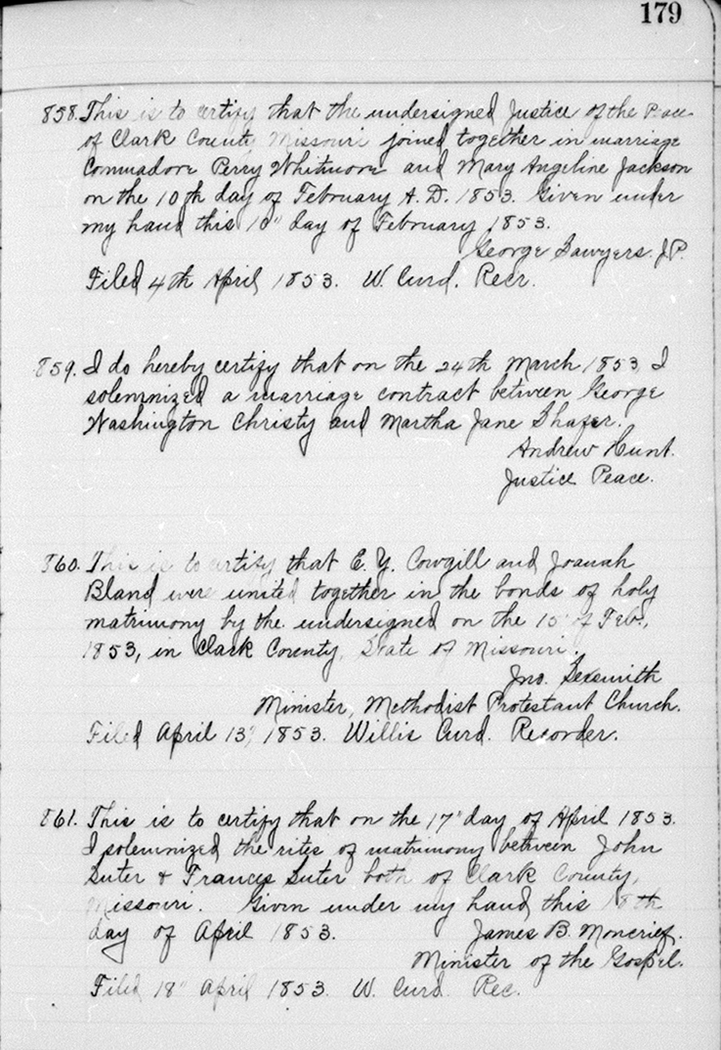 179
858. This is to certify that the undersigned Justice of the Peace
of Clark County Missouri joined together in marriage
Commadore Perry Whitmore and Mary Angeline Jackson
on the 10th day of February A.D. 1853. Given under
my hand this 10" day of February 1853.
George Sawyers. J.P.
Filed 4th April 1853. W. Curd. Recr.
859. I do hereby certify that on the 24th March 1853 I
solemnized a marriage contract between George
Washington Christy and Martha Jane
Andrew Hunt.
Justice Peace.
860. This is to certify that E. Y. Cowgill and Joanah
Bland were united together in the bonds of holy
matrimony by the undersigned on the 15 of Feb.,
1853, in Clark County, State of Missouri.
Jno. Sexsmith
Minister, Methodist Protestant Church.
Filed April 13, 1853. Willis Curd. Recorder.
861. This is to certify that on the 17" day of April 1853.
I solemnized the rites of matrimony between John
Suter & Frances Suter both of Clark County,
Missouri. Given under my hand this 18th
day of April 1853. James B. Moncrief.
Minister of the Gospel.
Filed 18" April 1853. W. Curd. Rec.